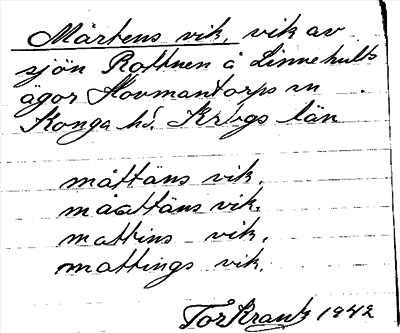 Mårtens vik, vik av
sjön Rottnen å Linnehults
ägor Hovmantorps sn
Konga hd. Krbgs län
måttäns vik,
måattäns vik.
mattins vik,
mattings vik.
Tor Krantz 1942